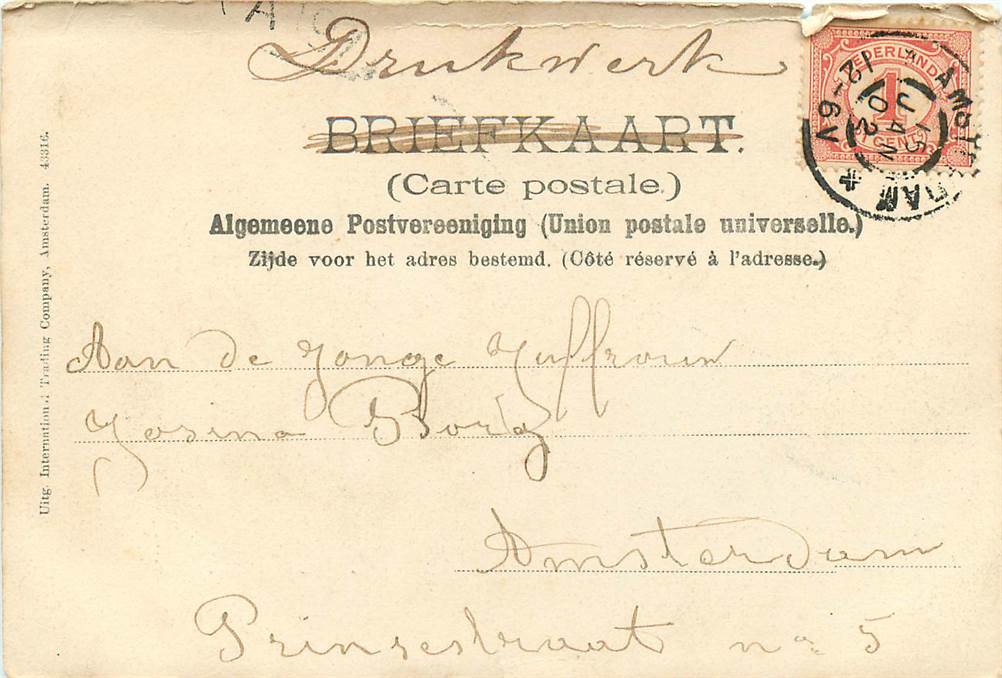 Drukwerk
BRIEFKAART.
(Carte postale.)
Algemeene Postvereeniging (Union postale universelle.)
Zijde voor het adres bestemd. (Côté réservé à l'adresse.)
NEDERLAND
1
CENT
AMSTERDAM
15 JAN 02
12-6V
Aan de Jonge Juffrouw
Josina Borg
Amsterdam
Prinsestraat no 5
Uitg. International Trading Company, Amsterdam. 43316.